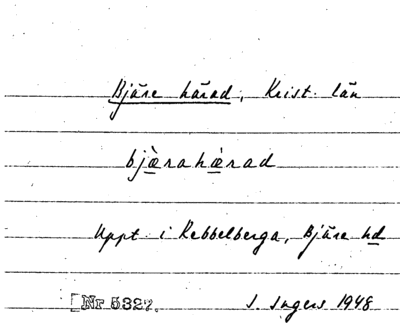 Bjäre härad, Krist. län
bjæ̀rahæ̀rad
Uppt. i Rebbelberga, Bjäre hd
[Nr 5327. I. Ingers 1948